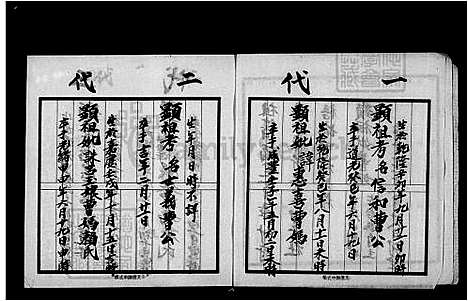 一代
生於乾隆辛卯年九月廿一卯時
顯祖考名信和曹公
卒于道光癸巳年六月十九日
生於乾隆癸巳年八月十日未時
顯祖妣諱惠喜曹媽
卒于咸豐壬子年五月初二日未時
二代
生年月日時不詳
顯祖考名士義曹公
卒于 年二月廿一日
生於嘉慶壬戌年十月十五日辰時
顯祖妣 曹媽賴氏
卒于光緒 申年八月十九日申時